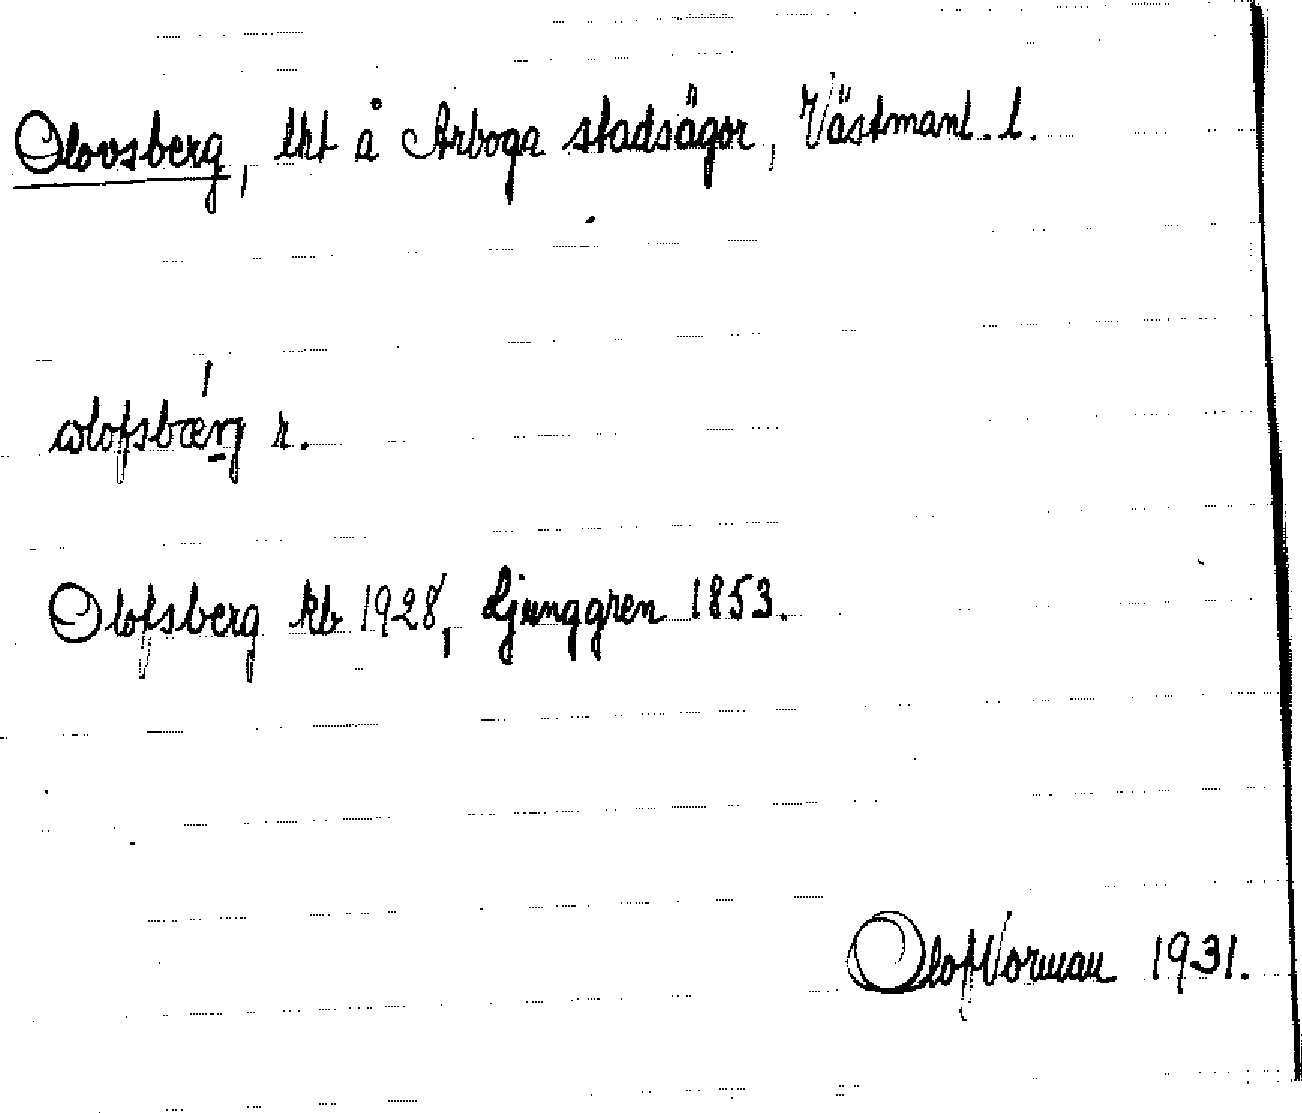 Olovsberg, lht å Arboga stadsägor, Västmanl. l.
ωlofsbærj r.
Olofsberg kb 1928, Ljunggren 1853.
Olof Norman 1931.